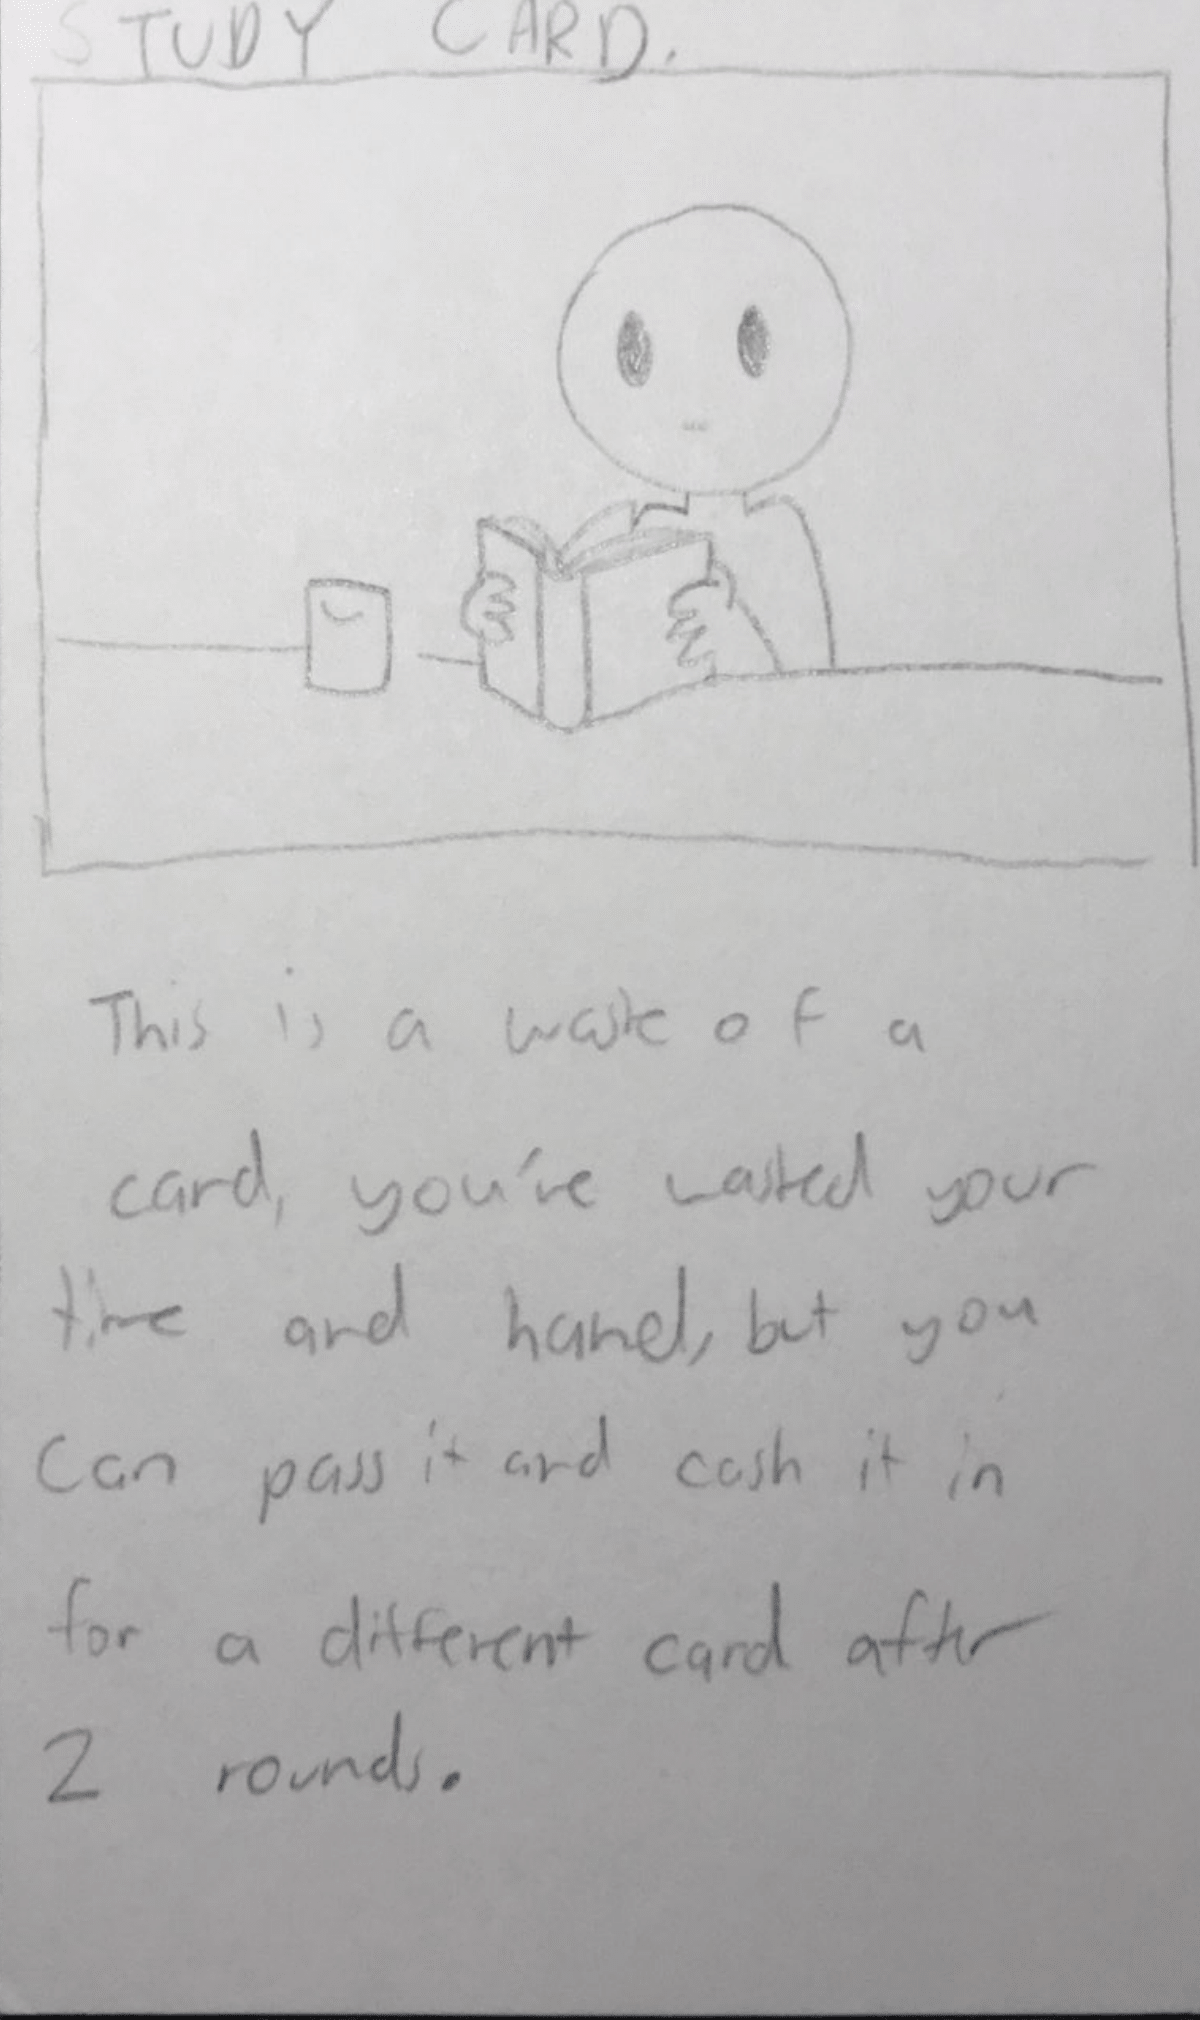 STUDY CARD.
This is a waste of a
card, you've wasted your
time and hand, but you
can pass it and cash it in
for a different card after
2 rounds.